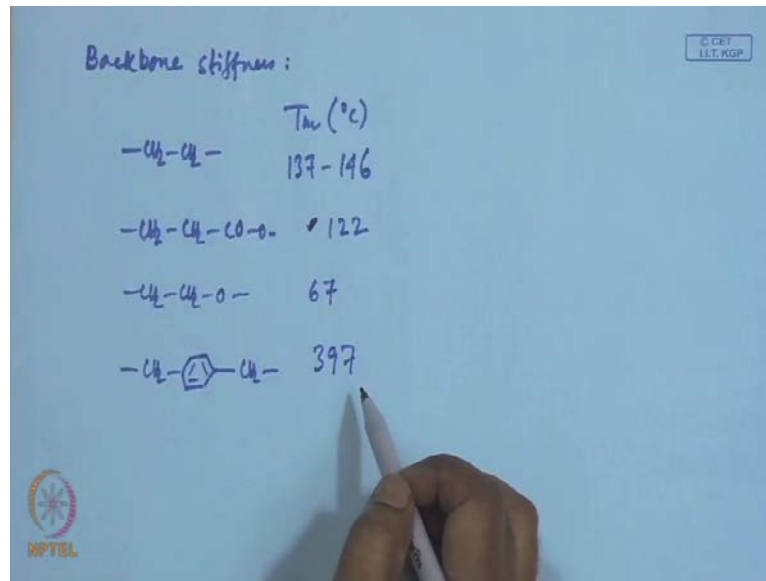 © CET
I.I.T. KGP
Backbone stiffness :
Tm (°C)
-CH2-CH2- 137-146
-CH2-CH2-CO-O- 122
-CH2-CH2-O- 67
-CH2- -CH2- 397
NPTEL